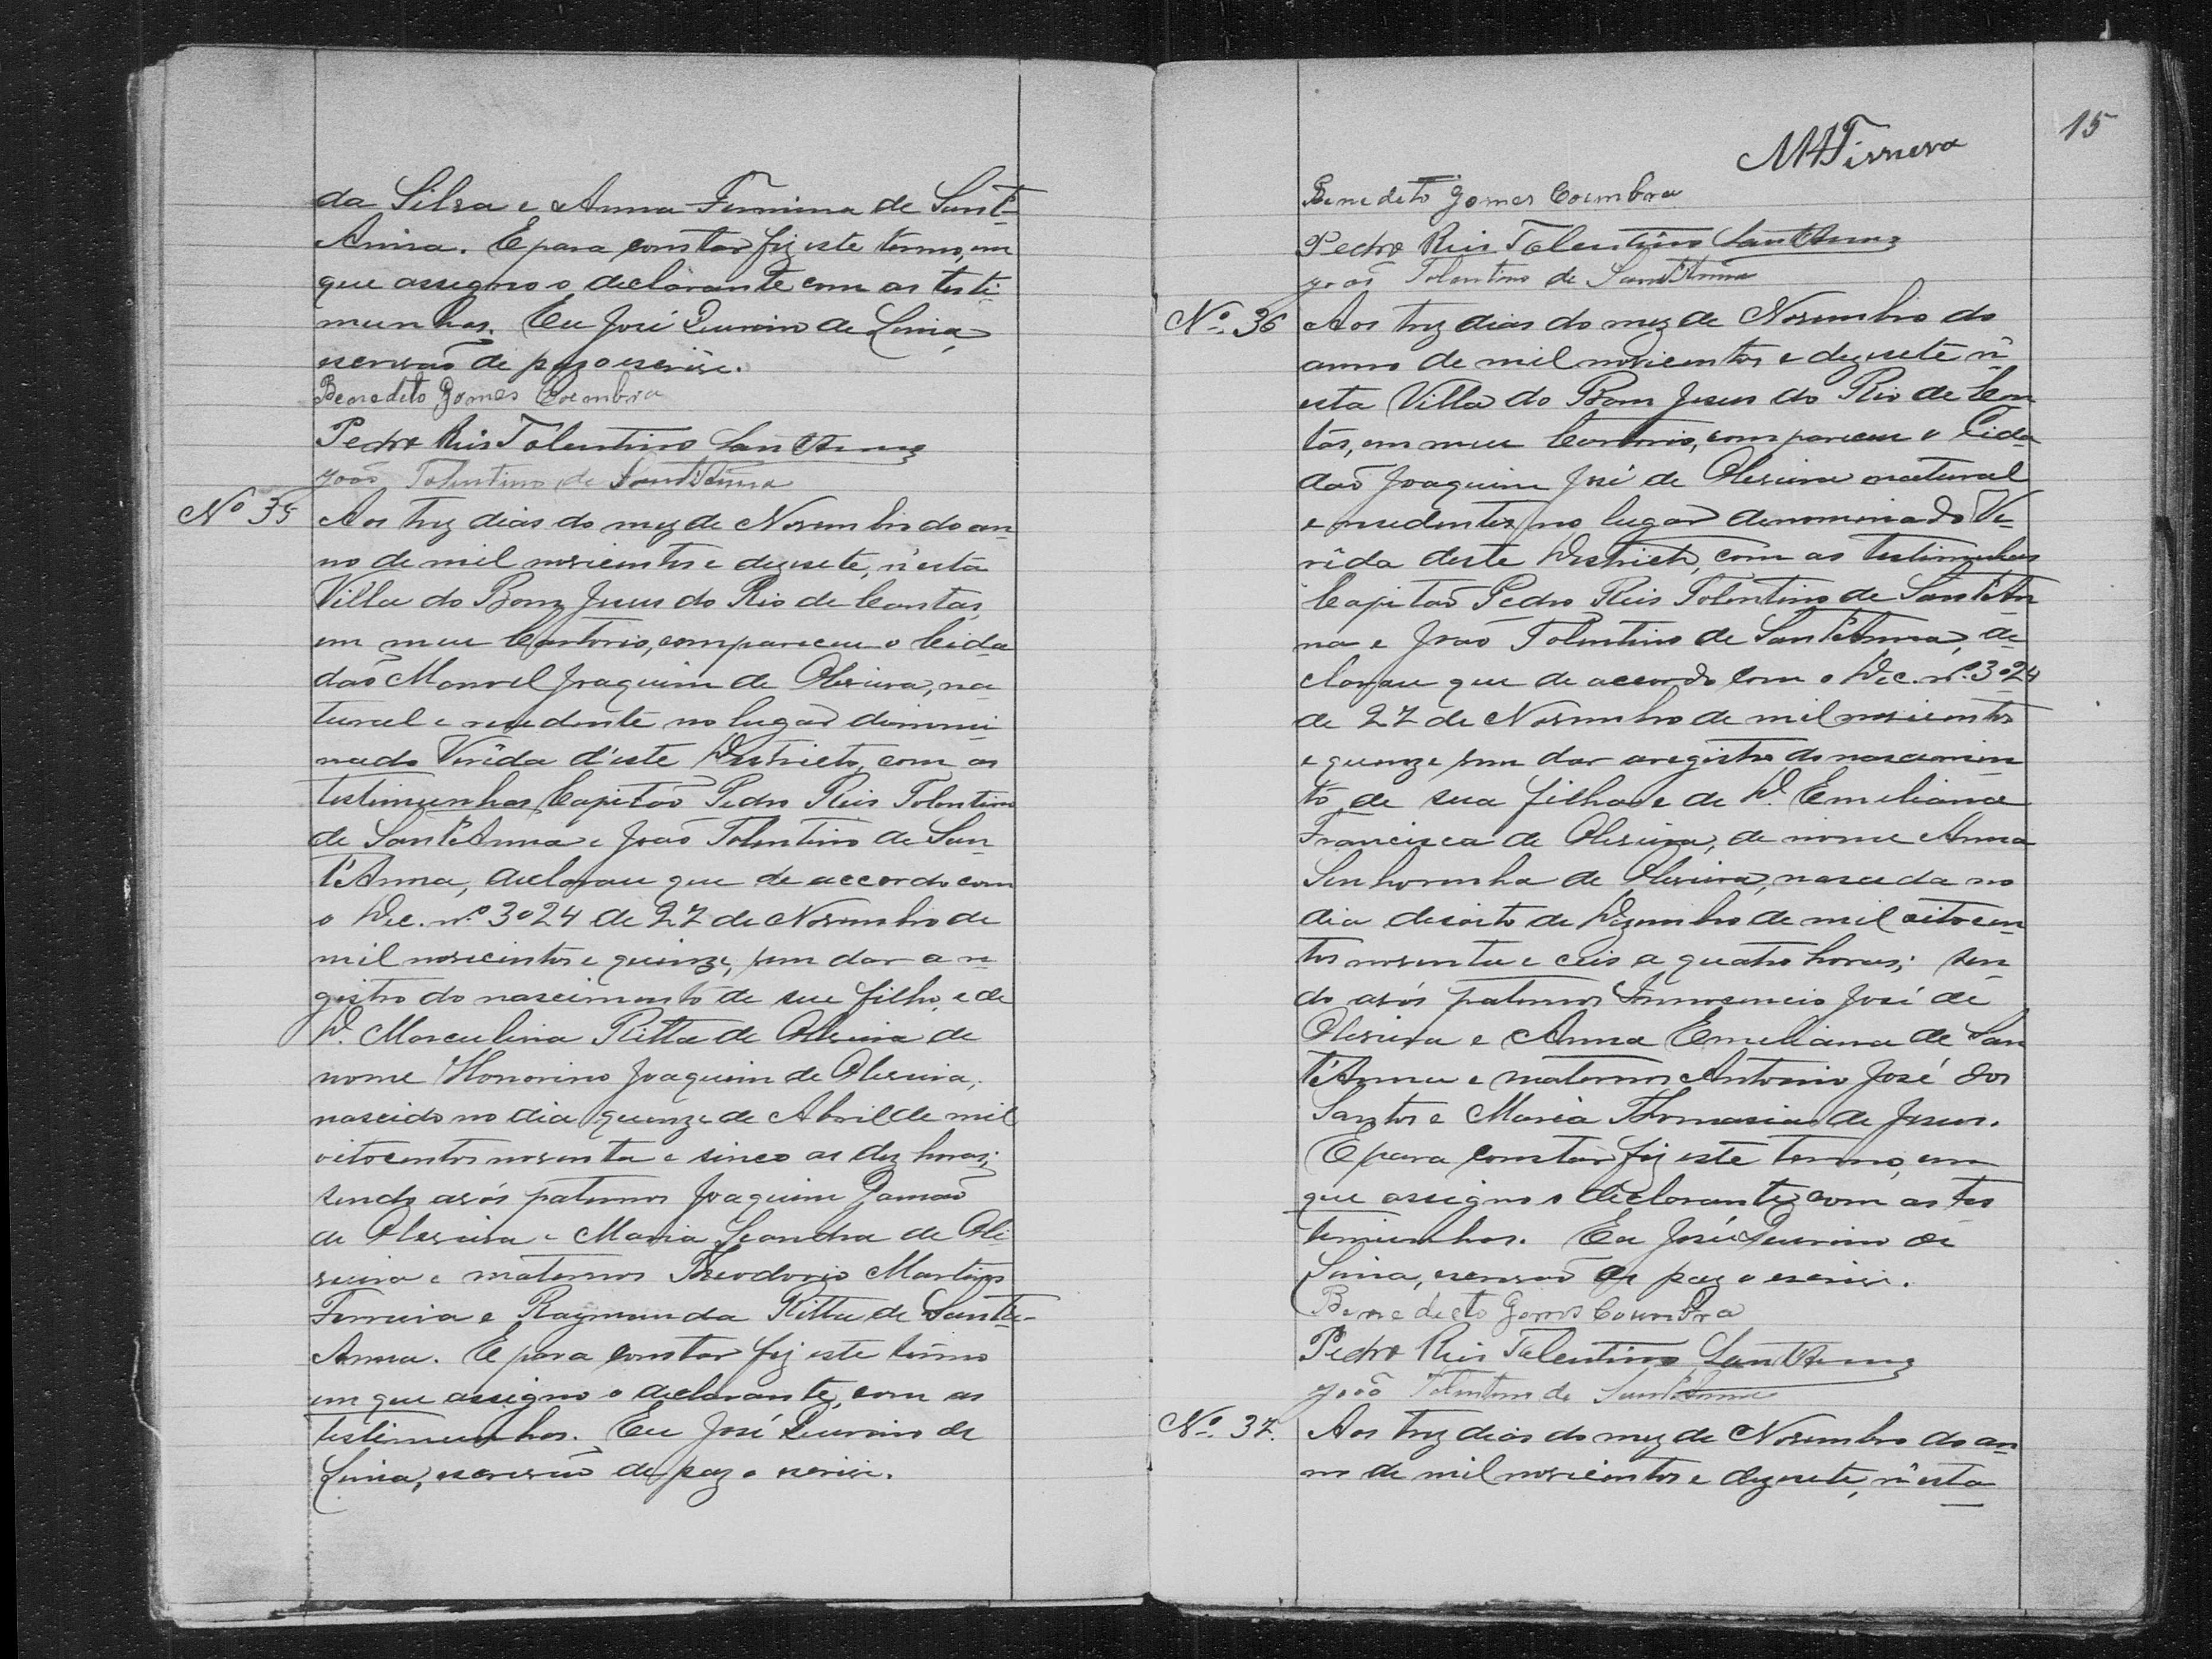 da Silva e Anna Firmina de Sant-
Anna. E para constar fiz este termo, em
que assigno o declarante com as teste
munhas. Eu José Quirino de Lima,
escrivão de paz o escrivi.
Benedito Gomes Coembra
Pedro Reis Tolentino SantAnna
João Tolentino de Sant'Anna
Nº 35
Aos trez dias do mez de Novembro do an
no de mil novicentos e dezesete, n'esta
Villa do Bom Jesus do Rio de Contas,
em meu Cartorio, compareceu o Cida
dão Manoel Joaquim de Oliveira, na
tural e residente no lugar dinomi
nado Verêda d'este Districto, com as
testimunhas Capitão Pedro Reis Tolentino
de Sant'Anna e João Tolentino de San
t'Anna, declarou que de accordo com
o Dec. nº 3024 de 27 de Novembro de
mil novicentos e quinze, vem dar a re
gistro do nascimento de seu filho, e de
D. Marculina Ritta de Oliveira de
nome Honorino Joaquim de Oliveira,
nascido no dia quinze de Abril de mil
oitocentos noventa e sinco as dez horas;
sendo avós paternos Joaquim Damião
de Oliveira e Maria Leandra de Oli
veira e maternos Theodorio Martins
Ferreira e Raymunda Ritta de Sant-
Anna. E para constar fiz este têrmo
em que assigno o declarante, com as
testimunhas. Eu José Quirino de
Lima, escrivão de paz o escrivi.
15
Benedito Gomes Coembra
Pedro Reis Tolentino SantAnna
João Tolentino de Sant'Anna
Nº 36
Aos trez dias do mez de Novembro do
anno de mil novicentos e dezesete n'
esta Villa do Bom Jesus do Rio de Con
tas, em meu Cartorio, compareceu o Cida
dão Joaquim José de Oliveira natural
e residente no lugar denominado Ve-
rêda deste Districto, com as testimunhas
Capitão Pedro Reis Tolentino de Sant'An
na e João Tolentino de Sant'Anna, de
clarou que de accordo com o Dec. nº 3024
de 27 de Novembro de mil novicentos
e quinze vem dar a registro do nascimen
to de sua filha e de D. Emiliana
Francisca de Oliveira, de nome Anna
Senhorinha de Oliveira, nascida no
dia desoito de Dezembro de mil oitocen
tos noventa e ceis a quatro horas; sen
do avós paternos Innosencio José de
Oliveira e Anna Emeliana de San
t'Anna e maternos Antonio José dos
Santos e Maria Thomasia de Jesus.
E para constar fiz este termo, em
que assigno o declarante com as tes
timunhas. Eu José Quirino de
Lima, escrivão de paz o escrivi.
Benedicto Gomes Coembra
Pedro Reis Tolentino SantAnna
João Tolentino de Sant'Anna
Nº 37.
Aos trez dias do mez de Novembro do an
no de mil novicentos e dezesete, n'esta